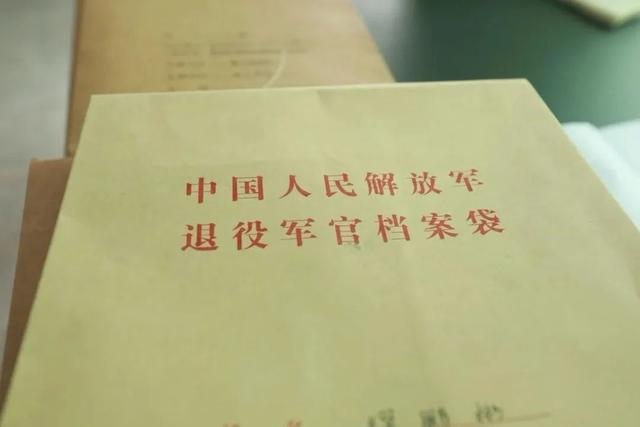 中国人民解放军
退役军官档案袋